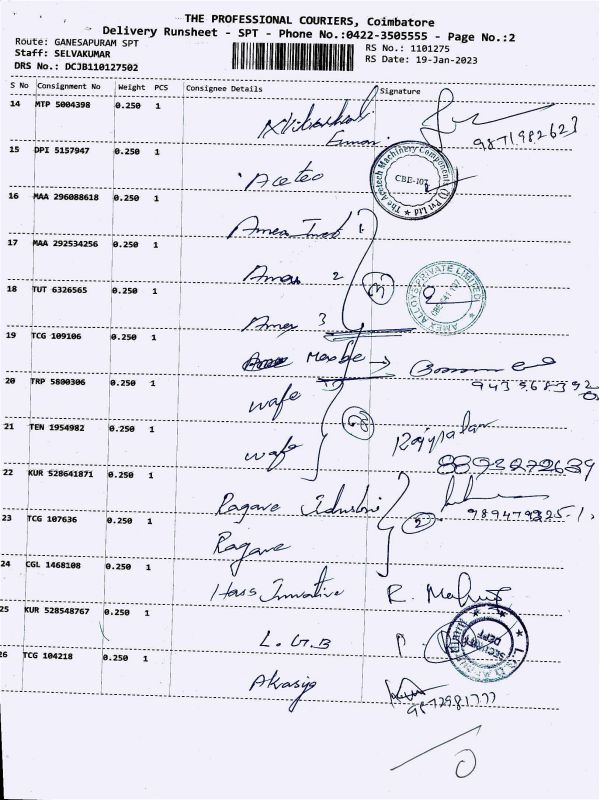 THE PROFESSIONAL COURIERS, Coimbatore
Delivery Runsheet - SPT - Phone No.:0422-3505555 - Page No.:2
Route: GANESAPURAM SPT
RS No.: 1101275
Staff: SELVAKUMAR
RS Date: 19-Jan-2023
DRS No.: DCJB110127502
S No Consignment No Weight PCS Consignee Details Signature
14 MTP 5004398 0.250 1
9871982623
15 DPI 5157947 0.250 1 Acetec
The Acetech Machinery Components (I) Pvt Ltd
CBE-107
16 MAA 296088618 0.250 1 1
17 MAA 292534256 0.250 1 Amex 2
3
AMEX ALLOYS PRIVATE LIMITED
18 TUT 6326565 0.250 1 Amex 3
19 TCG 109106 0.250 1
20 TRP 5800306 0.250 1 wafe
2
21 TEN 1954982 0.250 1 wafe
8893272639
22 KUR 528641871 0.250 1 Ragave
2
23 TCG 107636 0.250 1 Ragave
24 CGL 1468108 0.250 1 R.
25 KUR 528548767 0.250 1 L.G.B
SECURITY DEPT
26 TCG 104218 0.250 1